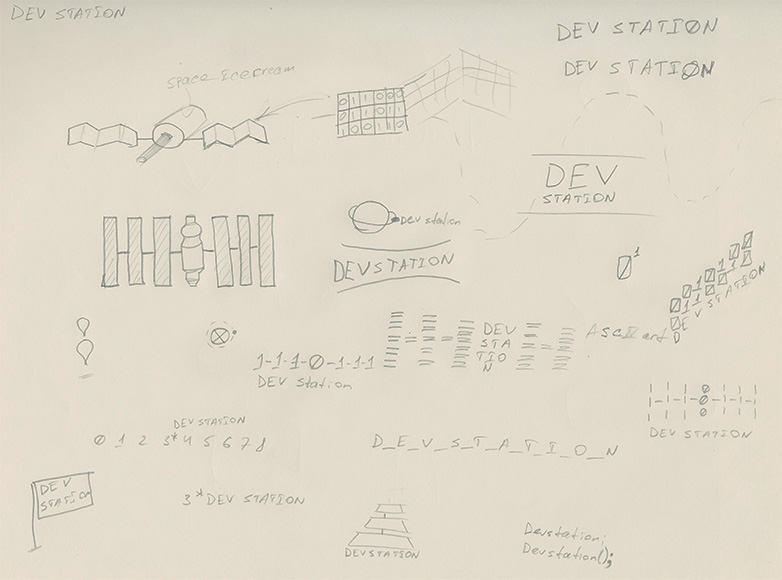 DEV STATION
DEV STATIØN
DEV STATIØN
space icecream
DEV
STATION
Dev station
DEVSTATION
Ø¹
DEV STATION
1-1-1-Ø-1-1-1
DEV station
DEV
STA
TIO
N
ASCII art
DEV STATION
DEV STATION
Ø 1 2 3* 4 5 6 7 8
D_E_V_S_T_A_T_I_O_N
DEV
STATION
3*DEV STATION
DEVSTATION
Devstation;
Devstation();